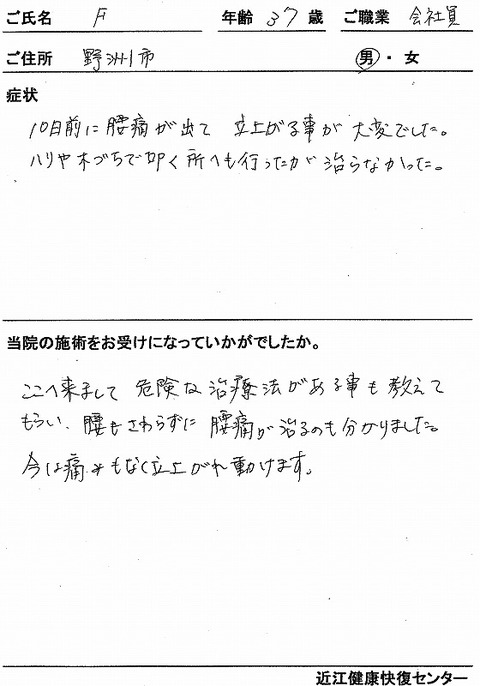 ご氏名 F 年齢 37 歳 ご職業 会社員
ご住所 野洲市 男・女
症状
10日前に腰痛が出て 立上がる事が 大変でした。
ハリや木づちで叩く所へも行ったが治らなかった。
当院の施術をお受けになっていかがでしたか。
ここへ来まして 危険な治療法がある事も教えて
もらい、腰もさわらずに腰痛が治るのも分かりました。
今は痛みもなく立上がれ動けます。
近江健康快復センター